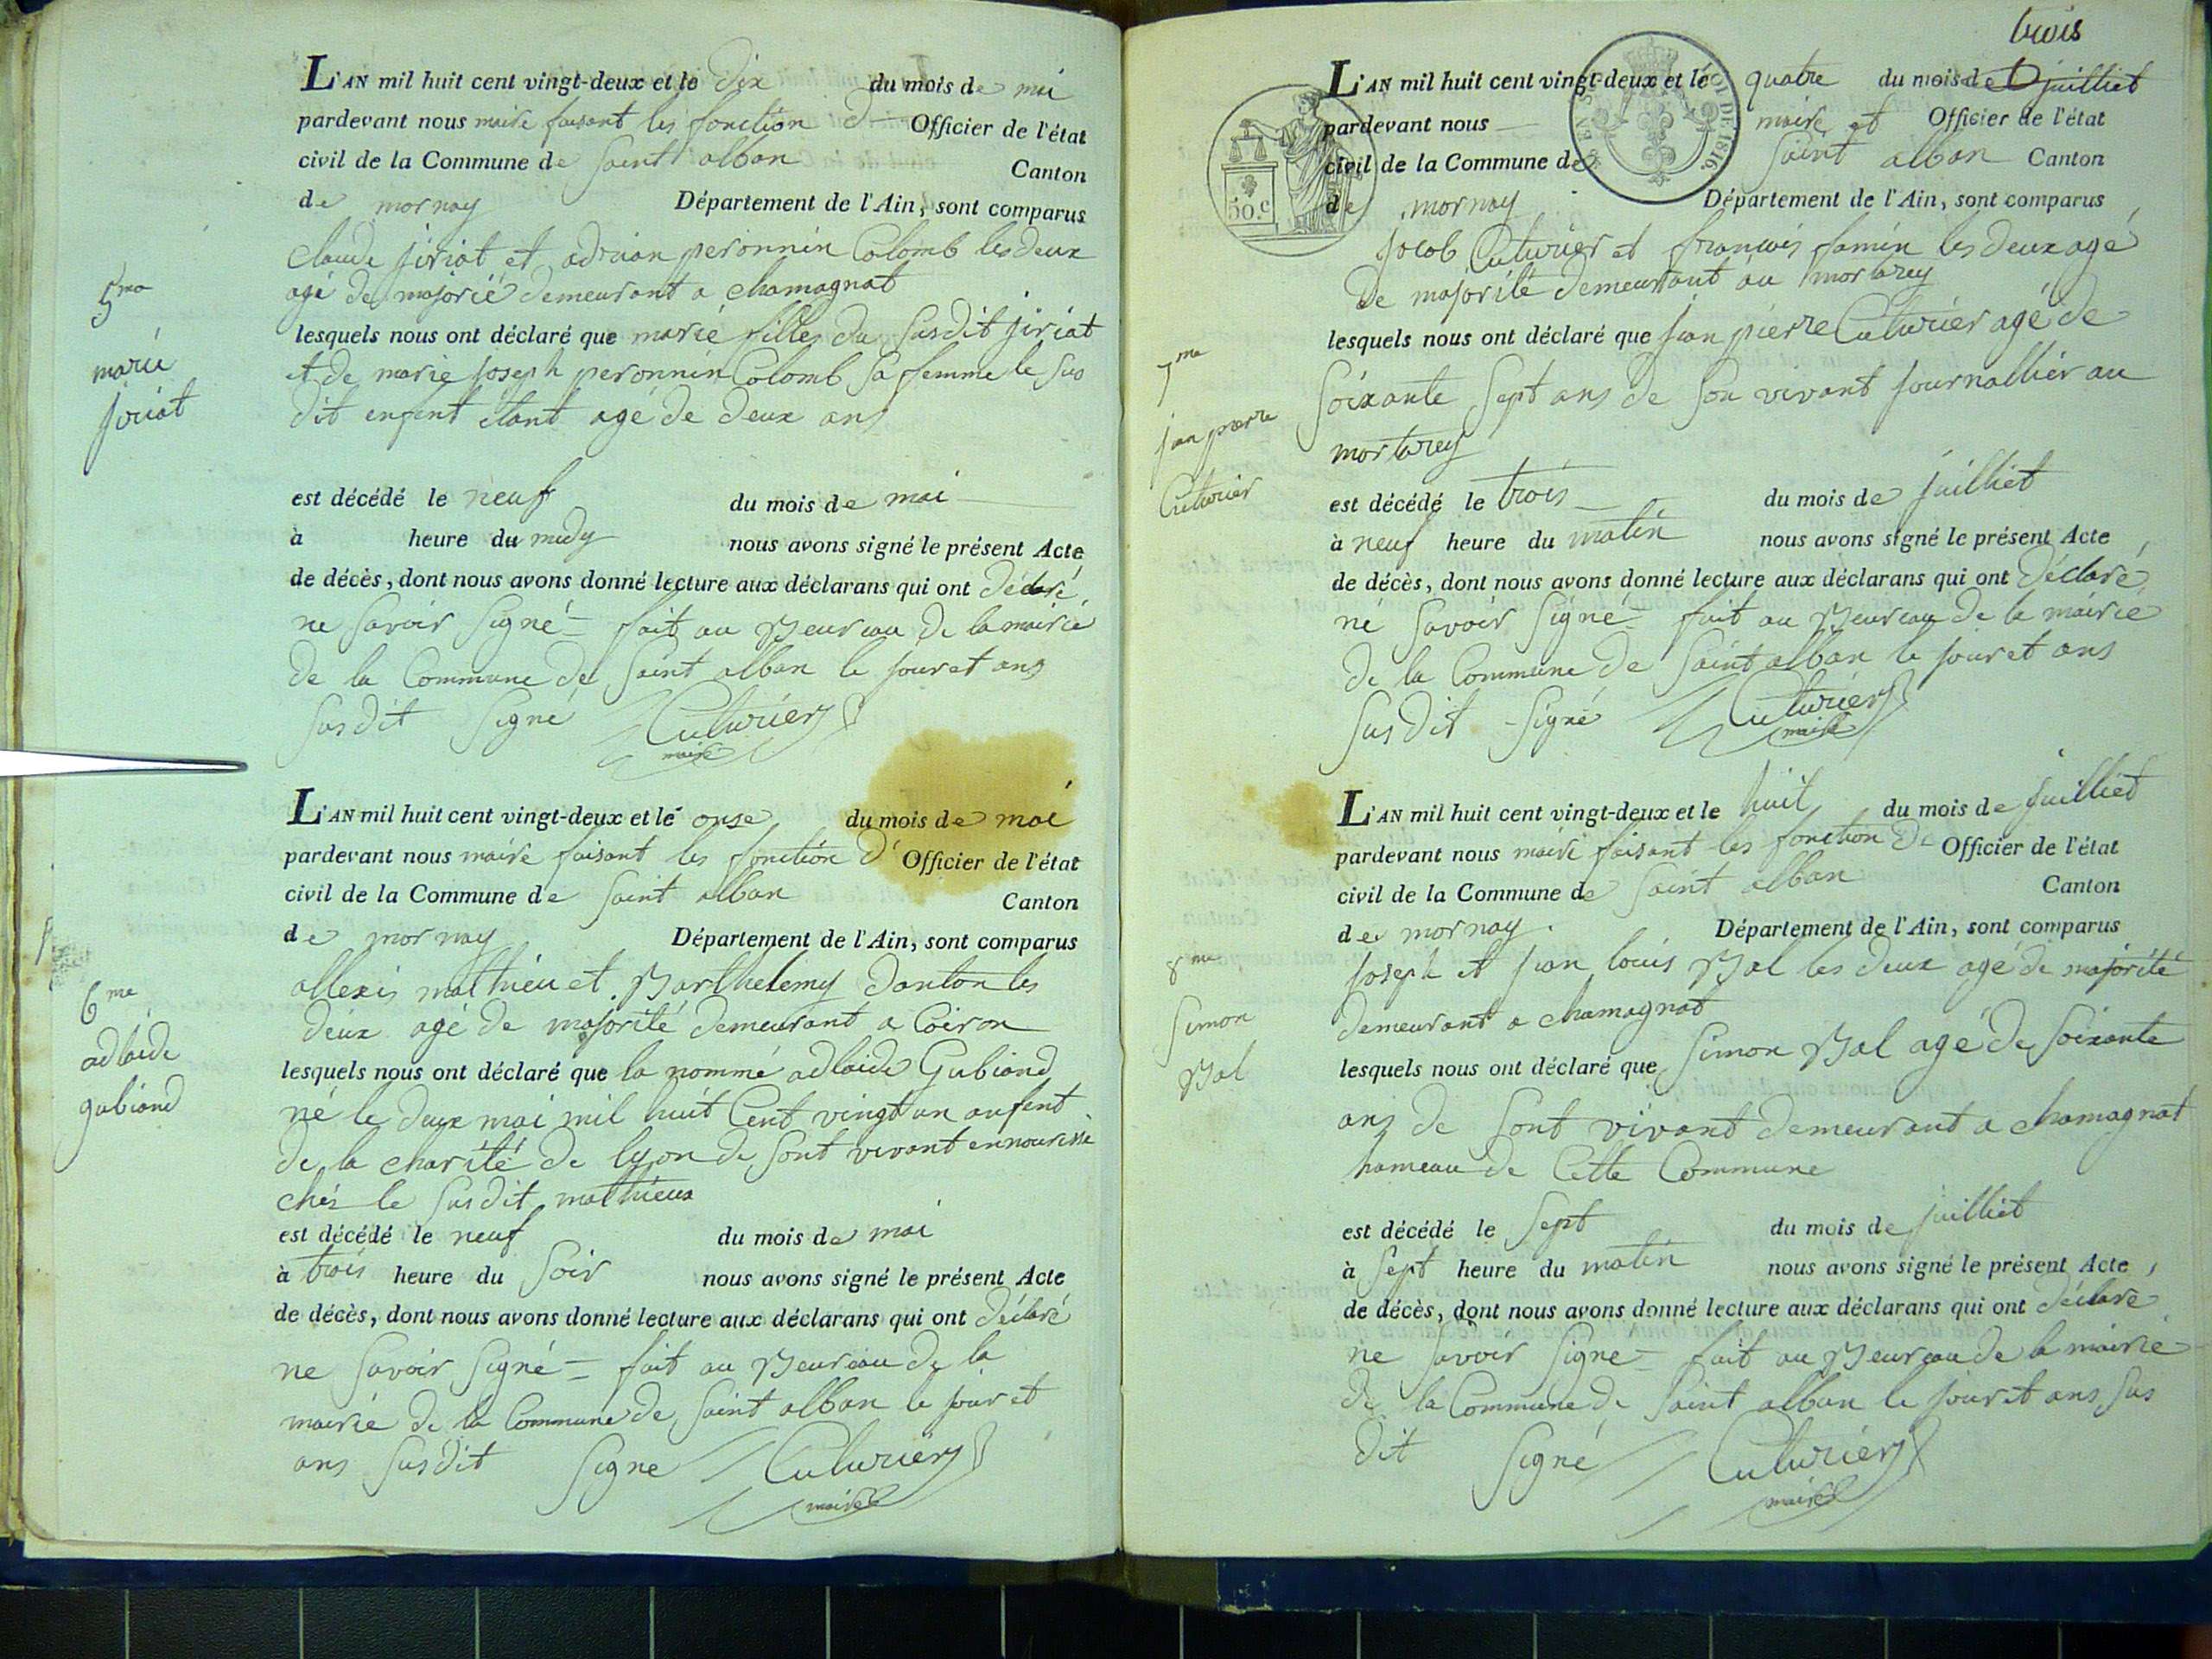 L'AN mil huit cent vingt-deux et le dix du mois de mai
pardevant nous maire faisant les fonction d Officier de l'état
civil de la Commune de Saint alban Canton
de mornay Département de l'Ain, sont comparus
claude jiriat et adrian peronnin Colomb les deux
agé de majorié demeurant a chamagnat
5me
marie
jiriat
lesquels nous ont déclaré que marie filles du Susdit jiriat
et de marie joseph peronnin Colomb Sa femme le Sus
dit enfent étant agé de deux ans
est décédé le neuf du mois de mai
à heure du midy nous avons signé le présent Acte
de décès, dont nous avons donné lecture aux déclarans qui ont déclaré
ne Savoir Signé = fait au Beureau de la mairié
de la Commune de Saint alban le jour et ans
Susdit Signé Cuturier
maire
L'AN mil huit cent vingt-deux et le onse du mois de mai
pardevant nous maire faisant les fonction d' Officier de l'état
civil de la Commune de Saint alban Canton
de mornay Département de l'Ain, sont comparus
allexis mathieu et Barthelemy danton les
deux agé de majorité demeurant a Coiron
6me
adlaide
gubiand
lesquels nous ont déclaré que la nommé adlaide Gubiand
né le deux mai mil huit Cent vingt un anfent
de la charité de lyon de Sont vivant ennourisse
chés le Susdit mathieux
est décédé le neuf du mois de mai
à trois heure du Soir nous avons signé le présent Acte
de décès, dont nous avons donné lecture aux déclarans qui ont déclaré
ne Savoir Signé = fait au Beureau de la
mairie de la Commune de Saint alban le jour et
ans Susdit Signe Cuturier
maire
trois
L'AN mil huit cent vingt-deux et le quatre du mois de juilliet
pardevant nous maire et Officier de l'état
civil de la Commune de Saint alban Canton
de mornay Département de l'Ain, sont comparus
50.c
LOI DE 1816
jacob Cuturier et francois famin les deux agé
de majorité demeurtant au mortarey
7me
jan pierre
Cuturier
lesquels nous ont déclaré que jean pierre Cuturier agé de
Soixante Sept ans de Son vivant journallier au
mortarey
est décédé le trois du mois de juilliet
à neuf heure du matin nous avons signé le présent Acte
de décès, dont nous avons donné lecture aux déclarans qui ont déclaré
né Savoir Signé = fait au Beureau de la mairie
de la Commune de Saint alban le jour et ans
Susdit - Signé Cuturier
maire
L'AN mil huit cent vingt-deux et le huit du mois de juilliet
pardevant nous maire faisant les fonction de Officier de l'état
civil de la Commune de Saint alban Canton
de mornay. Département de l'Ain, sont comparus
joseph et jean louis Bal les deux agé de majorité
demeurant a chamagnat
8me
Simon
Bal
lesquels nous ont déclaré que Simon Bal agé de Soixante
ans de Sont vivant demeurant a chamagnat
hameau de Cette Commune
est décédé le Sept du mois de juilliet
à Sept heure du matin nous avons signé le présent Acte
de décès, dont nous avons donné lecture aux déclarans qui ont déclaré
ne Savoir Signe = fait au Beureau de la mairie
de la Commune de Saint alban le jour et ans Sus
dit Signé Cuturier
maire